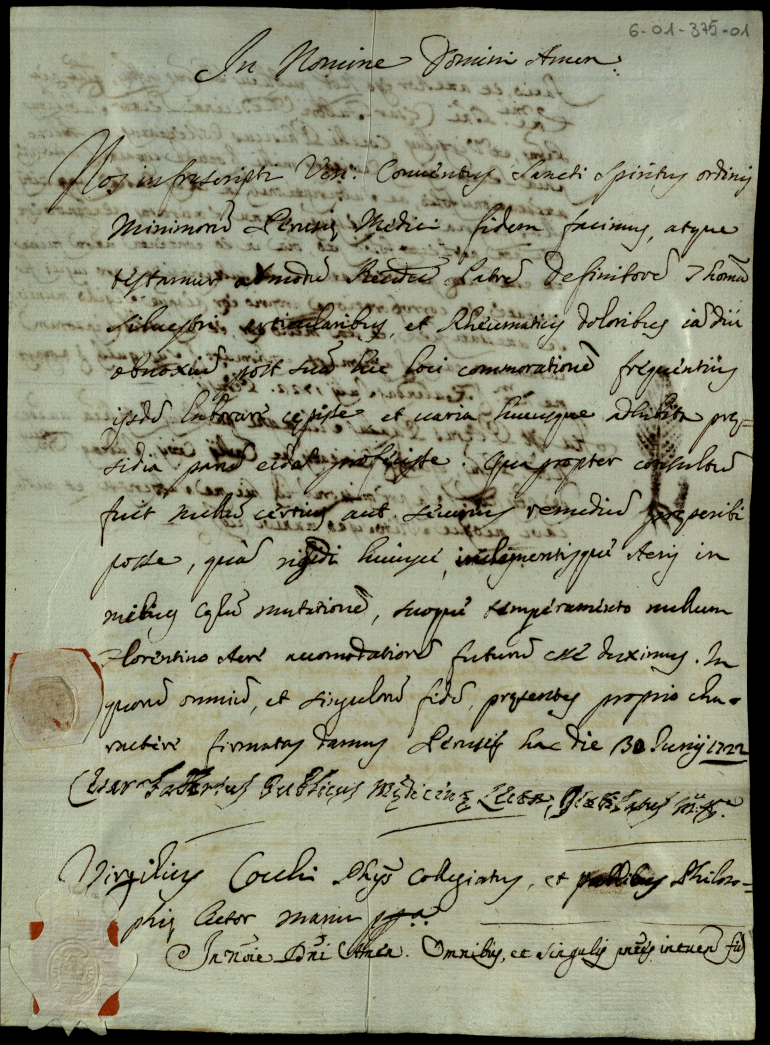 6-01-375-01
In Nomine Domini Amen.
Nos infrascripti Ven: Conventus Sancti Spiritus ordinis
Minimorũ Perusię Medici fidem facimus, atque
testamur admodũ Rñdũ Patrẽ Definitorẽ Thomã
Silvestri articularibus, et Rheumaticis doloribus iã diu
obnoxiũ post suã hic loci commorationẽ frequentius
ijsdẽ laborare cępisse et varia hucusque adhibita prę=
sidia parũ eidẽ profuisse. Quapropter consultũ
fuit nullũ certius aut securius remediũ pręscribi
posse, quã rigidi huiusce, inclementisque Aeris in
melius cęlũ mutationẽ, suoque temperamento nullum
Florentino Aere accomodatiorẽ futurũ esse duximus. In
quorũ omniũ, et singulorũ fidẽ, pręsentes proprio cha=
ractere firmatas damus Perusię hac die 30 Junij 1722
Cęsar Publicus Medicinę Lector,
Virgilius Cocchi Phys Collegiatus, et publicus Philoso=
phię Lector manu ppa.
In nõie Dñi Amen. Omnibus, et singulis pñtes intuen fid